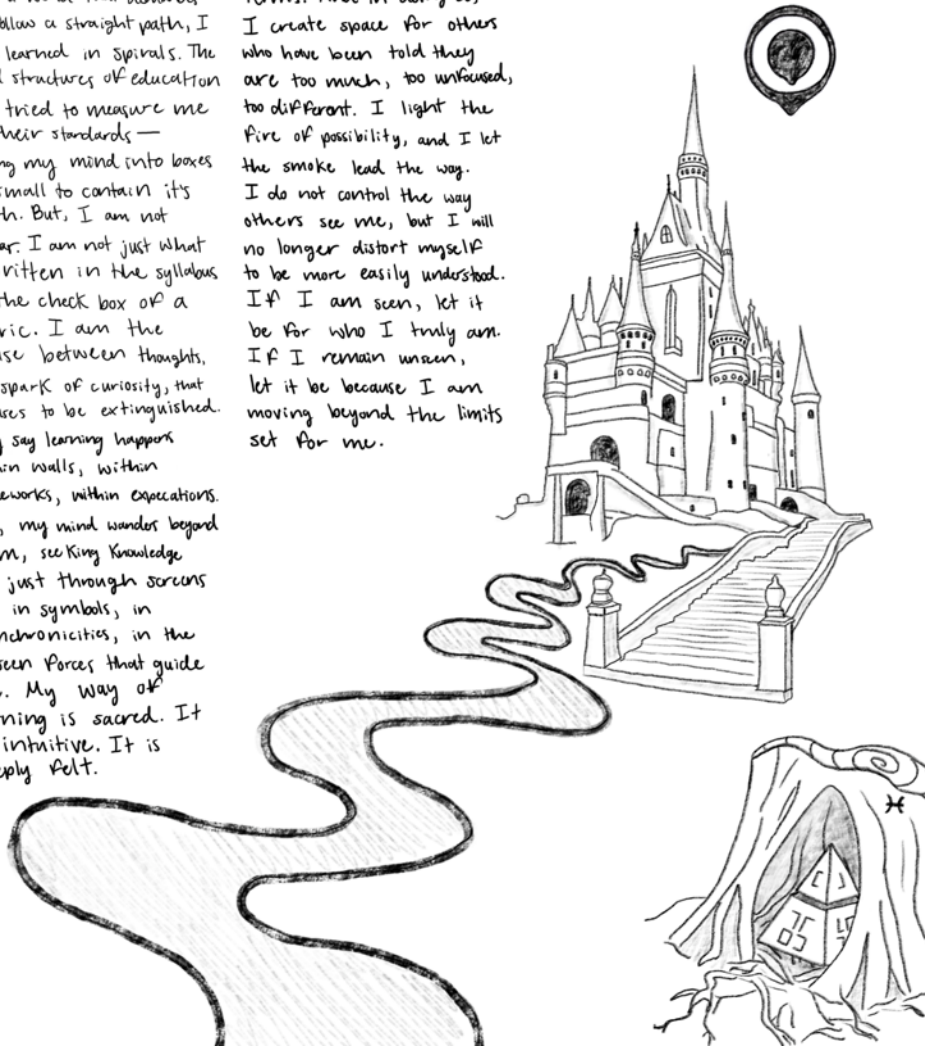 ollow a straight path, I
learned in spirals. The
structures of education
tried to measure me
heir standards—
ng my mind into boxes
small to contain it's
th. But, I am not
ar. I am not just what
ritten in the syllabus
the check box of a
ric. I am the
se between thoughts,
spark of curiosity, that
ses to be extinguished.
y say learning happens
in walls, within
eworks, within expecations.
, my mind wanders beyond
m, seeking knowledge
just through screens
in symbols, in
nchronicities, in the
seen forces that guide
. My way of
ning is sacred. It
intuitive. It is
eply felt.
I create space for others
who have been told they
are too much, too unfocused,
too different. I light the
fire of possibility, and I let
the smoke lead the way.
I do not control the way
others see me, but I will
no longer distort myself
to be more easily understood.
If I am seen, let it
be for who I truly am.
If I remain unseen,
let it be because I am
moving beyond the limits
set for me.